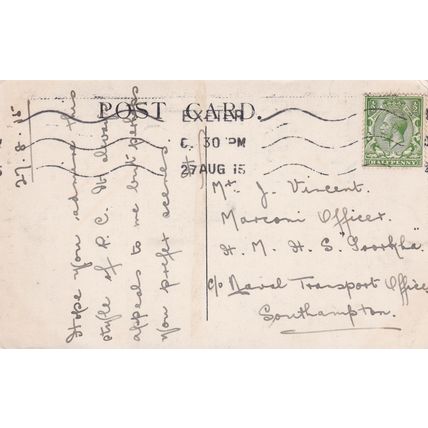 POST CARD.
EXETER
6. 30 PM
27 AUG 15
HALFPENNY
27.8.15
Hope you admire this
style of P.C. It always
appeals to me but perhaps
you prefer scenes
Mr. J. Vincent.
Marconi Officer.
H. M. H. S "Goorkha"
c/o Naval Transport Office
Southampton.